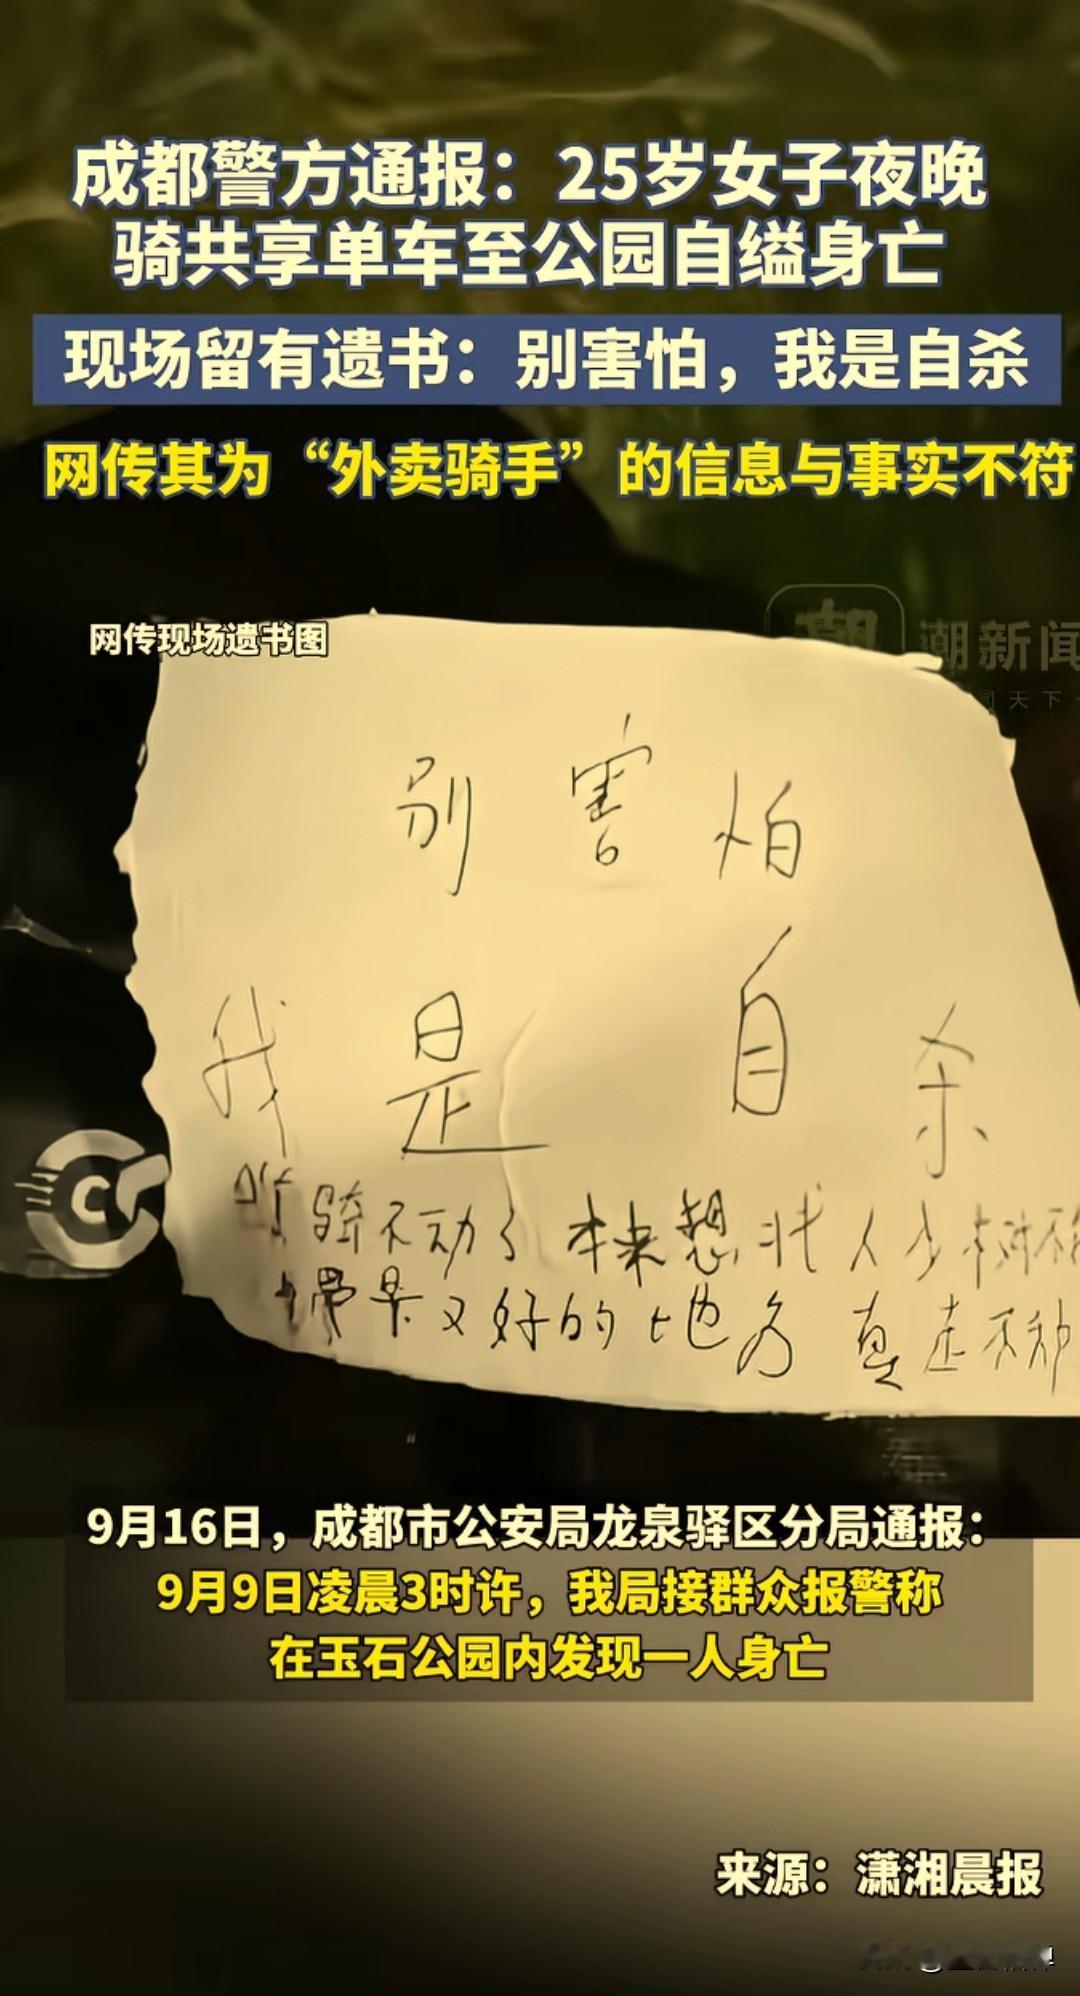 成都警方通报：25岁女子夜晚
骑共享单车至公园自缢身亡
现场留有遗书：别害怕，我是自杀
网传其为“外卖骑手”的信息与事实不符
网传现场遗书图
潮新闻
天下
别害怕
我是自杀
骑不动了 本来想找人少树不
又好的地方 真走不动
9月16日，成都市公安局龙泉驿区分局通报：
9月9日凌晨3时许，我局接群众报警称
在玉石公园内发现一人身亡
来源：潇湘晨报